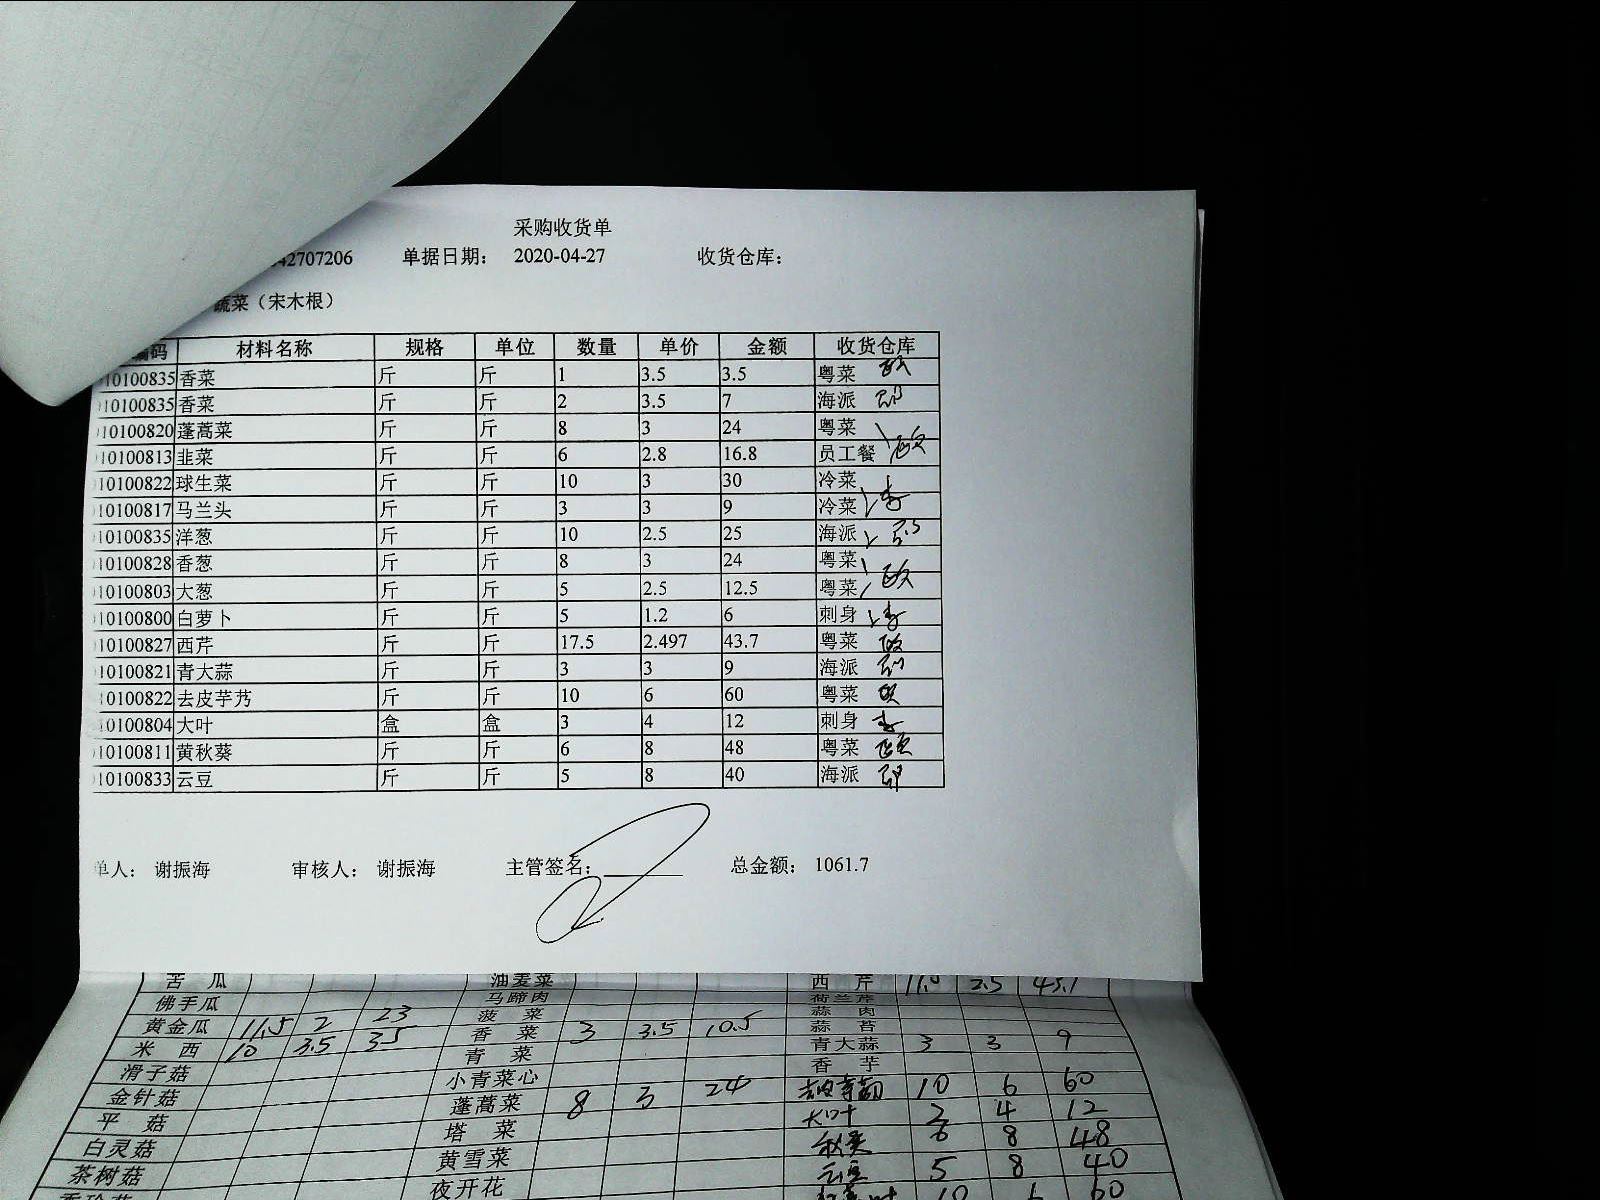 采购收货单
42707206 单据日期： 2020-04-27 收货仓库：
蔬菜（宋木根）
编码 材料名称 规格 单位 数量 单价 金额 收货仓库
10100835 香菜 斤 斤 1 3.5 3.5 粤菜
10100835 香菜 斤 斤 2 3.5 7 海派
10100820 蓬蒿菜 斤 斤 8 3 24 粤菜
10100813 韭菜 斤 斤 6 2.8 16.8 员工餐
10100822 球生菜 斤 斤 10 3 30 冷菜
10100817 马兰头 斤 斤 3 3 9 冷菜
10100835 洋葱 斤 斤 10 2.5 25 海派
10100828 香葱 斤 斤 8 3 24 粤菜
10100803 大葱 斤 斤 5 2.5 12.5 粤菜
10100800 白萝卜 斤 斤 5 1.2 6 刺身
10100827 西芹 斤 斤 17.5 2.497 43.7 粤菜
10100821 青大蒜 斤 斤 3 3 9 海派
10100822 去皮芋艿 斤 斤 10 6 60 粤菜
10100804 大叶 盒 盒 3 4 12 刺身
10100811 黄秋葵 斤 斤 6 8 48 粤菜
10100833 云豆 斤 斤 5 8 40 海派
单人： 谢振海 审核人： 谢振海 主管签名： 总金额： 1061.7
苦瓜 油麦菜 西芹 2.5
佛手瓜 马蹄肉 荷兰芹
黄金瓜 11.5 2 23 菠菜 蒜肉
米西 10 3.5 35 香菜 3 3.5 10.5 蒜苔
滑子菇 青菜 青大蒜 3 3 9
金针菇 小青菜心 香芋
平菇 蓬蒿菜 8 3 24 10 6 60
白灵菇 塔菜 大叶 3 4 12
茶树菇 黄雪菜 秋葵 6 8 48
夜开花 云豆 5 8 40
10 6 60